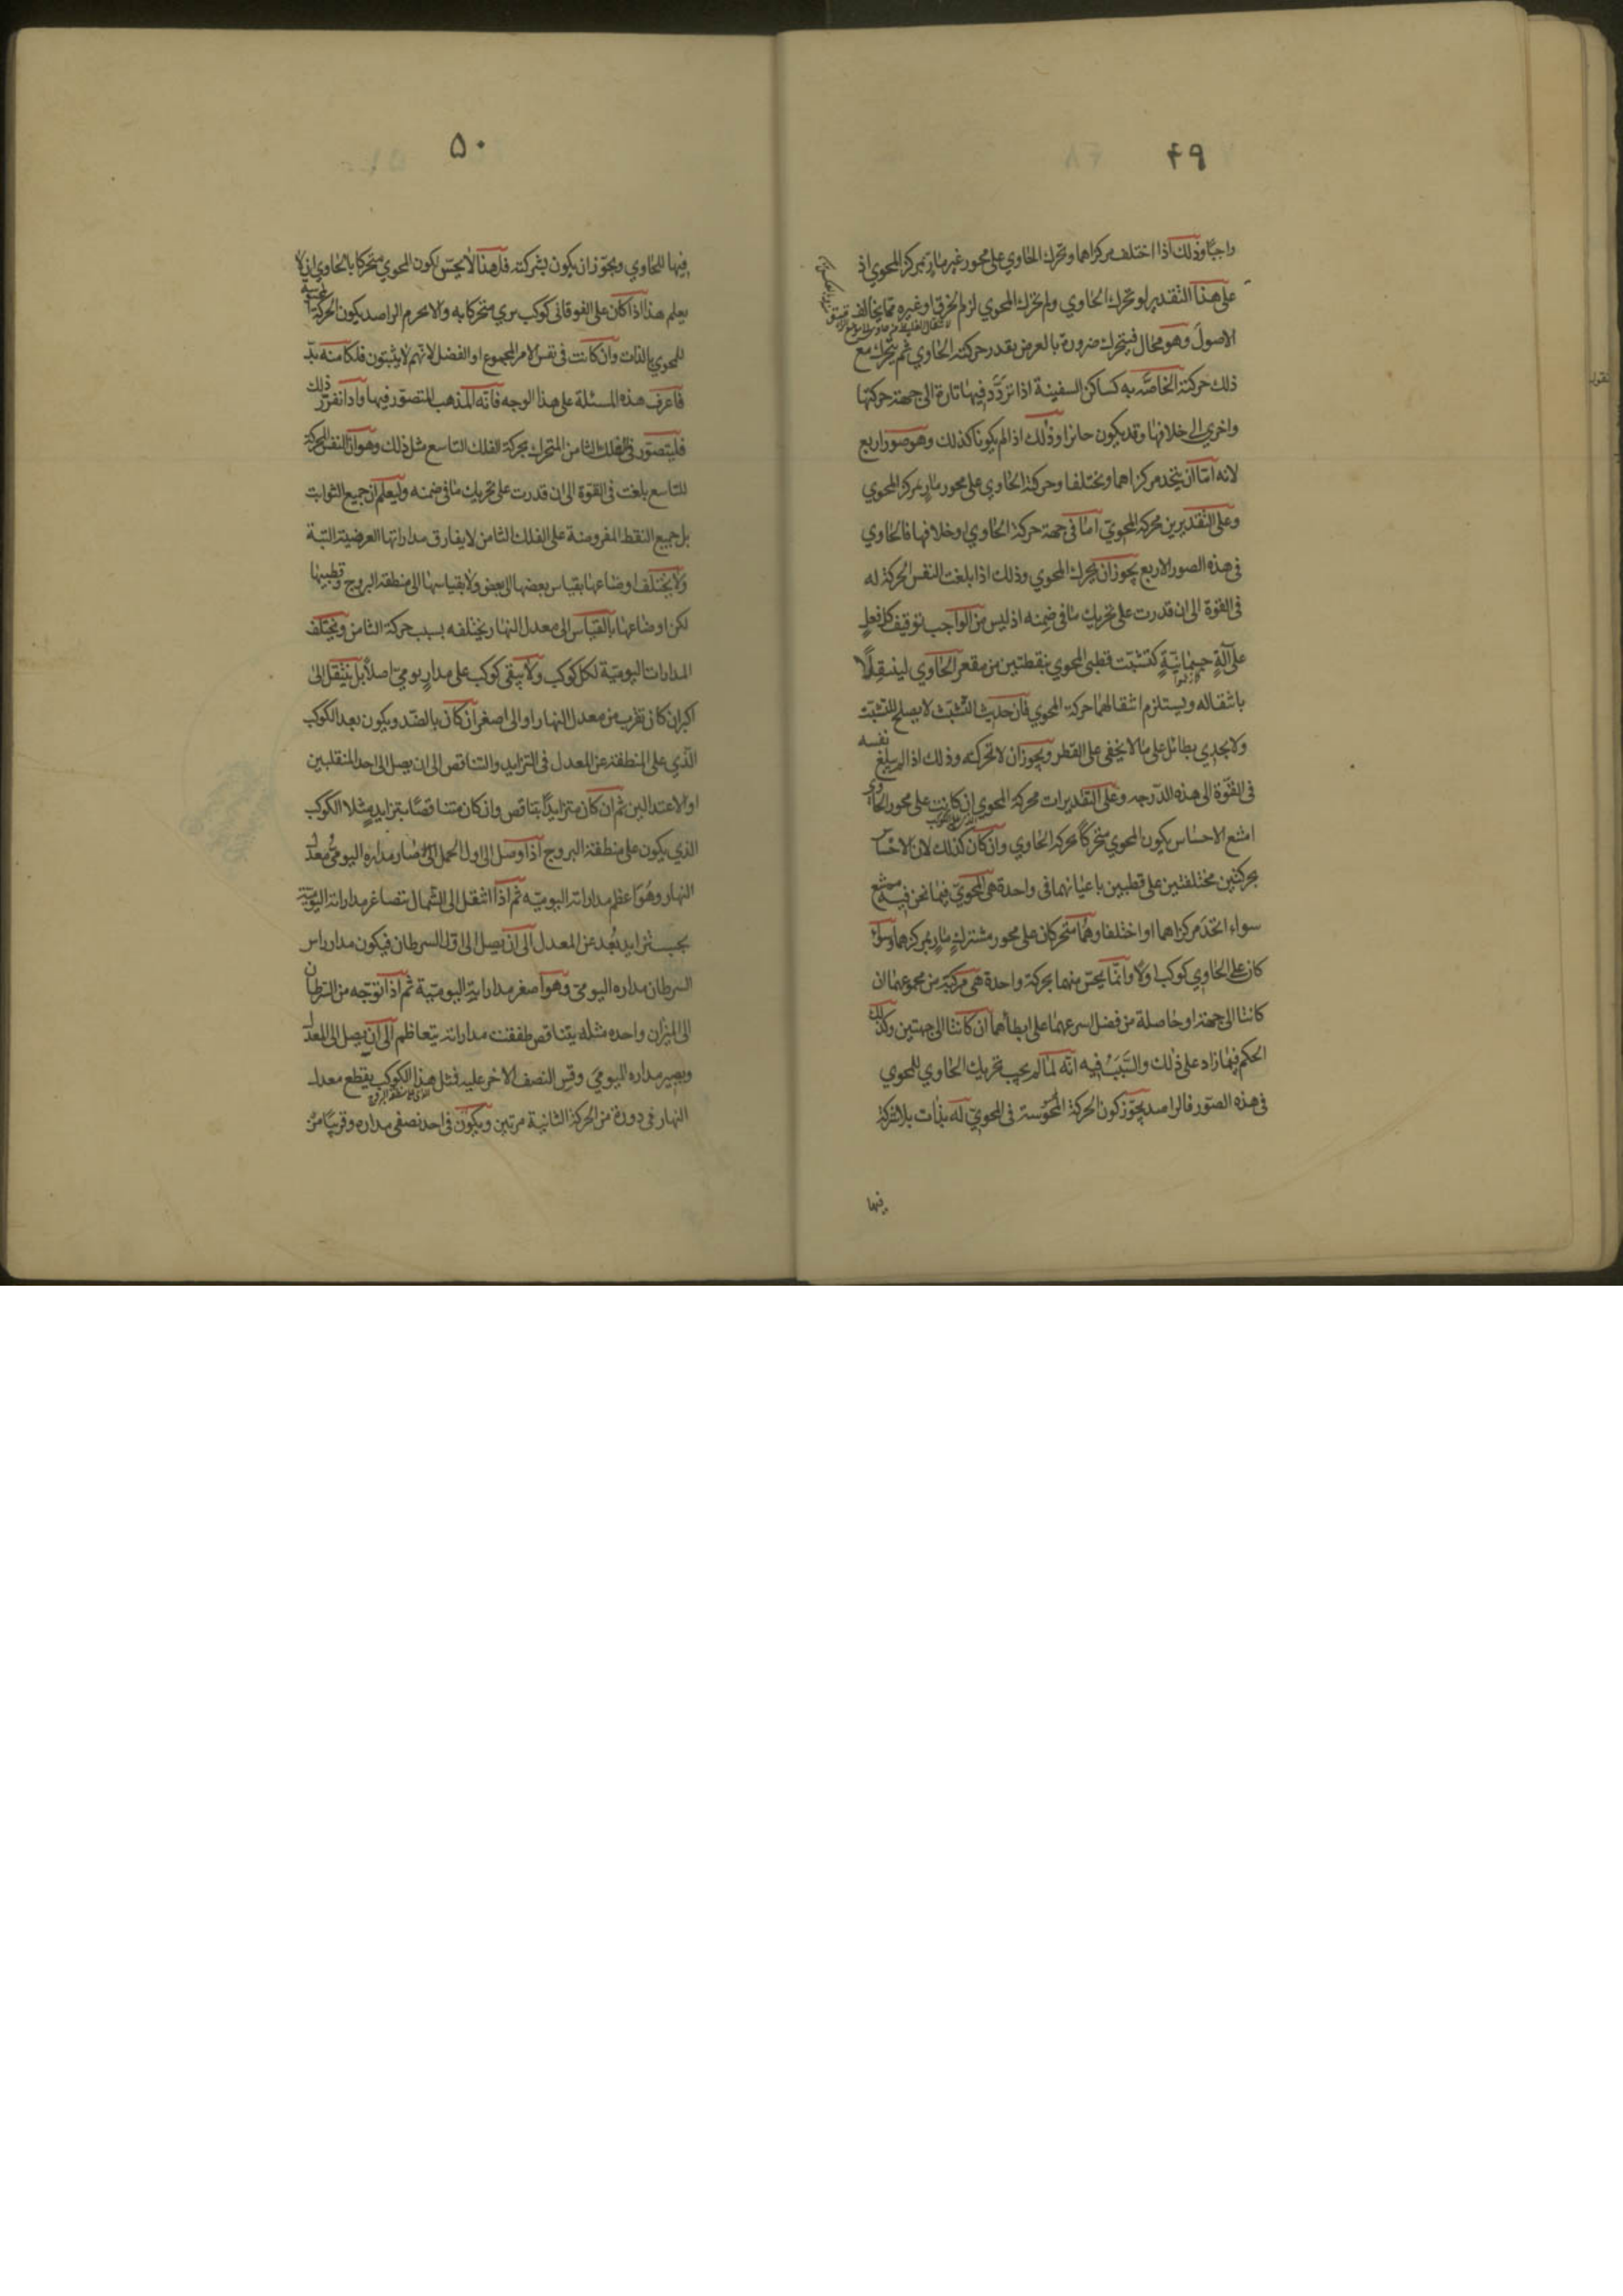 ٤٩
واجبًا وذلك اذا اختلف مركزاهما وتحرك الحاوي على محور غير مارٍ بمركز المحوي اذ
على هذا التقدير لو تحرك الحاوي ولم يتحرك المحوي لزم الخرق او غيره مما يخالف
الاصول وهو محال فيتحرك ضرورة بالعرض بقدر حركة الحاوي ثم يتحرك مع
ذلك حركته الخاصّة به كساكن السفينة اذا تردّد فيها تارة الى جهة حركتها
واخرى الى خلافها وقد يكون جائزا وذلك اذا لم يكونا كذلك وهو صور اربع
لانه امّا ان يتحد مركزاهما او يختلفا وحركة الحاوي على محور مارٍ بمركز المحوي
وعلى التقديرين محركة المحوي امّا في جهة حركة الحاوي او خلافها فالحاوي
في هذه الصور الاربع يجوز ان يحرك المحوي وذلك اذا بلغت النفس المحركة له
في القوة الى ان قدرت على تحريك ما في ضمنه اذ ليس من الواجب توقيف كل فعلٍ
على آلةٍ جسمانيّةٍ كتشبّث قطبي المحوي بنقطتين من مقعر الحاوي لينتقلا
بانتقاله ويستلزم انتقالهما حركة المحوي فان حديث التشبّث لا يصلح للتشبّث
ولا يجدي بطائل على ما لا يخفى على الفطن ويجوز ان لا تحركه وذلك اذا لم يبلغ نفسه
في القوّة الى هذه الدّرجه وعلى التقديرات محركة المحوي ان كانت على محور الحاوي
امتنع الاحساس بكون المحوي متحركًا بحركة الحاوي وان كان كذلك لان الاحساس
بحركتين مختلفتين على قطبين باعيانهما في واحدة هي المحويّ فيما نحن فيه ممتنع
سواء اتحد مركزاهما او اختلفا وهما متحركان على محور مشتركٍ مارٍ بمركزهما وسواء
كان على الحاوي كوكب اولا وانّما يحسّ منهما بحركة واحدة هي مركبّة من مجموعهما ان
كانتا الى جهة او حاصلة من فضل اسرعهما على ابطأهما ان كانتا الى جهتين وكذلك
الحكم فيما زاد على ذلك والسّبب فيه انّه لمّا لم يجب تحريك الحاوي للمحوي
في هذه الصّور فالراصد يجوّز كون الحركة المحسوسة في المحويّ له بذات بلا شركة
فيها
٥٠
فيها للحاوي ويجوّز ان يكون بشركته فلهذا لا يحسّ بكون المحوي متحركا بالحاوي اذ لا
يعلم هذا اذا كان على الفوقاني كوكب يرى متحركا به والا يحرم الراصد بكون الحركة المحسوسة
للمحوي بالذات وان كانت في نفس الامر المجموع او الفضل لانّهم لا يثبتون فلكا منه بدّ
فاعرف هذه المسئلة على هذا الوجه فانّه المذهب المتصوّر فيها واذا تقرّر ذلك
فليتصوّر في الفلك الثامن المتحرك بحركة الفلك التاسع مثل ذلك وهو ان النفس المحركة
للتاسع بلغت في القوة الى ان قدرت على تحريك ما في ضمنه وليعلم ان جميع الثوابت
بل جميع النقط المفروضة على الفلك الثامن لا يفارق مداراتها العرضية البتّة
ولا يختلف اوضاعها بقياس بعضها الى بعض ولا بقياسها الى منطقة البروج وقطبيها
لكن اوضاعها بالقياس الى معدل النهار يختلفه بسبب حركة الثامن ويختلف
المدارات اليوميّة لكل كوكب ولا يبقى كوكب على مدارٍ يوميّ اصلاً بل ينتقل الى
اكبر ان كان تقرب من معدل النهار او الى اصغر ان كان بالضّد ويكون بعد الكوكب
الّذي على المنطقة عن المعدل في التزايد والتناقص الى ان يصل الى احد المنقلبين
او الاعتدالين ثم ان كان متزايدًا يتناقص وان كان متناقصًا يتزايد مثلا الكوكب
الذي يكون على منطقة البروج اذا وصل الى اول الحمل صار مداره اليوميّ معدل
النهار وهو اعظم مداراته اليوميّه ثم اذا انتقل الى الشمال تصاغر مداراته اليوميّة
بحسب تزايد بُعد عن المعدل الى ان يصل الى اوّل السرطان فيكون مدار راس
السرطان مداره اليومي وهو اصغر مداراته اليوميّة ثم اذا توجّه من السّرطان
الى الميزان واحده مثله يتناقص طفقت مداراته يتعاظم الى ان يصل الى المعدل
ويصير مداره اليوميّ وقس النصف الاخر عليه فمثل هذا الكوكب يقطع معدل
النهار في دورة من الحركة الثانية مرتين ويكون في احد نصفي مداره وقريبًا من